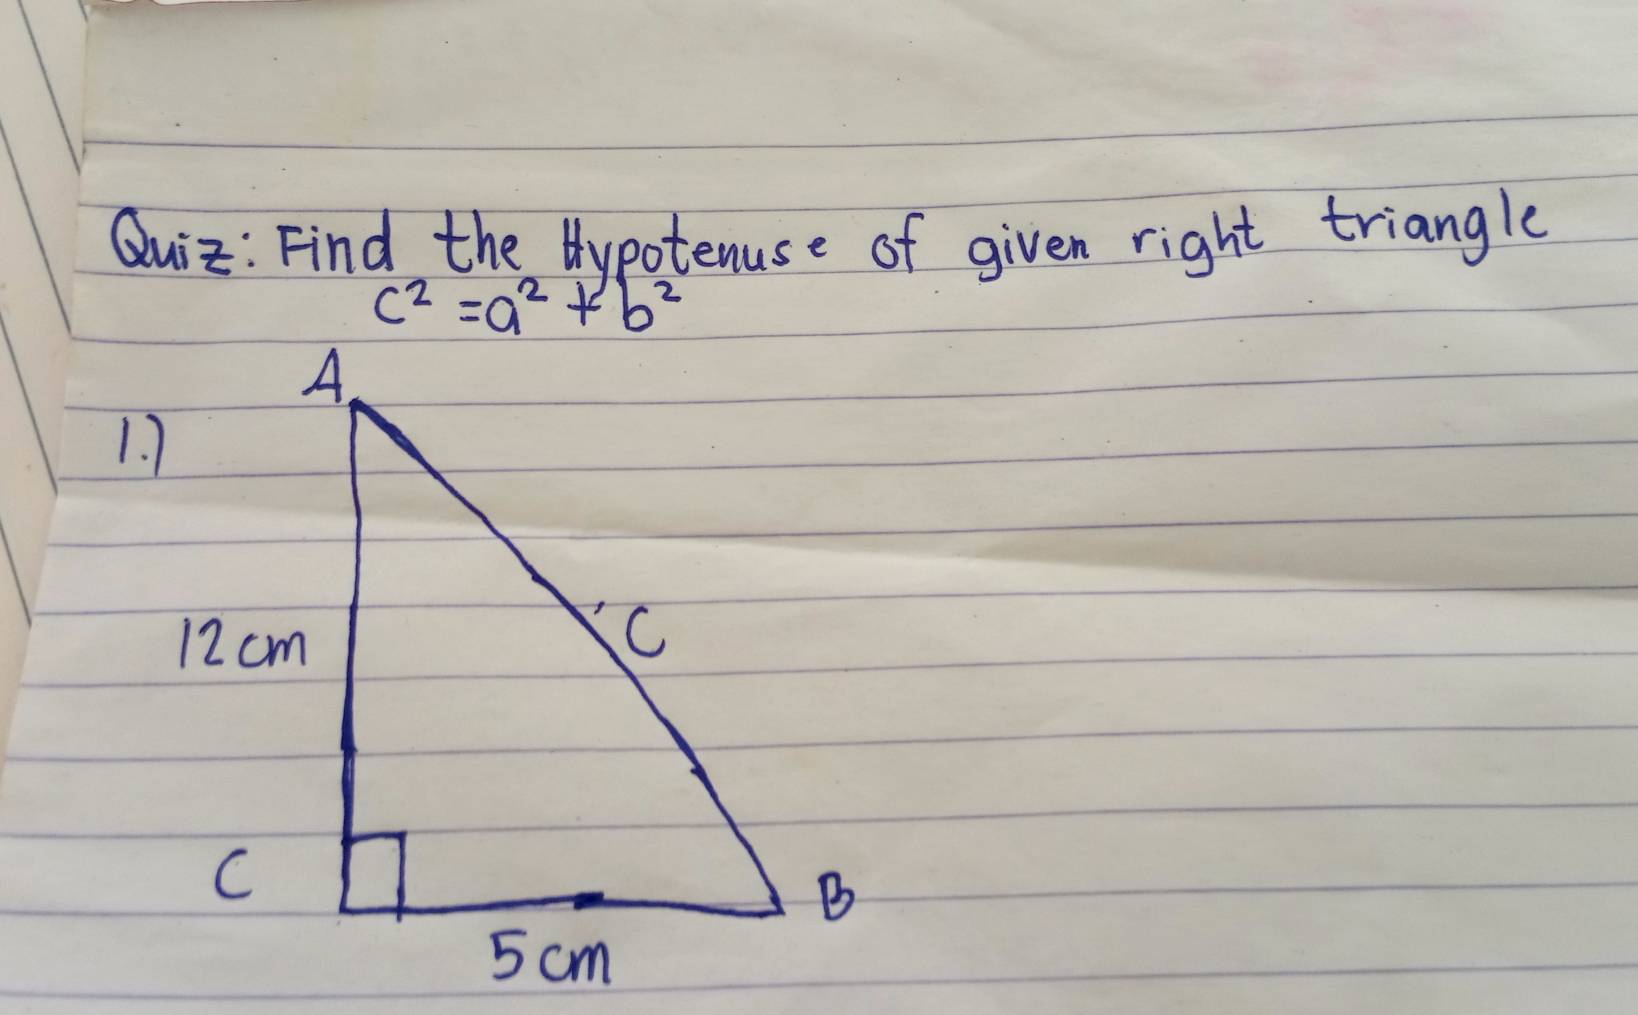 Quiz: Find the Hypotenuse of given right triangle
c² = a² + b²
A
1.)
12 cm
C
C
B
5 cm